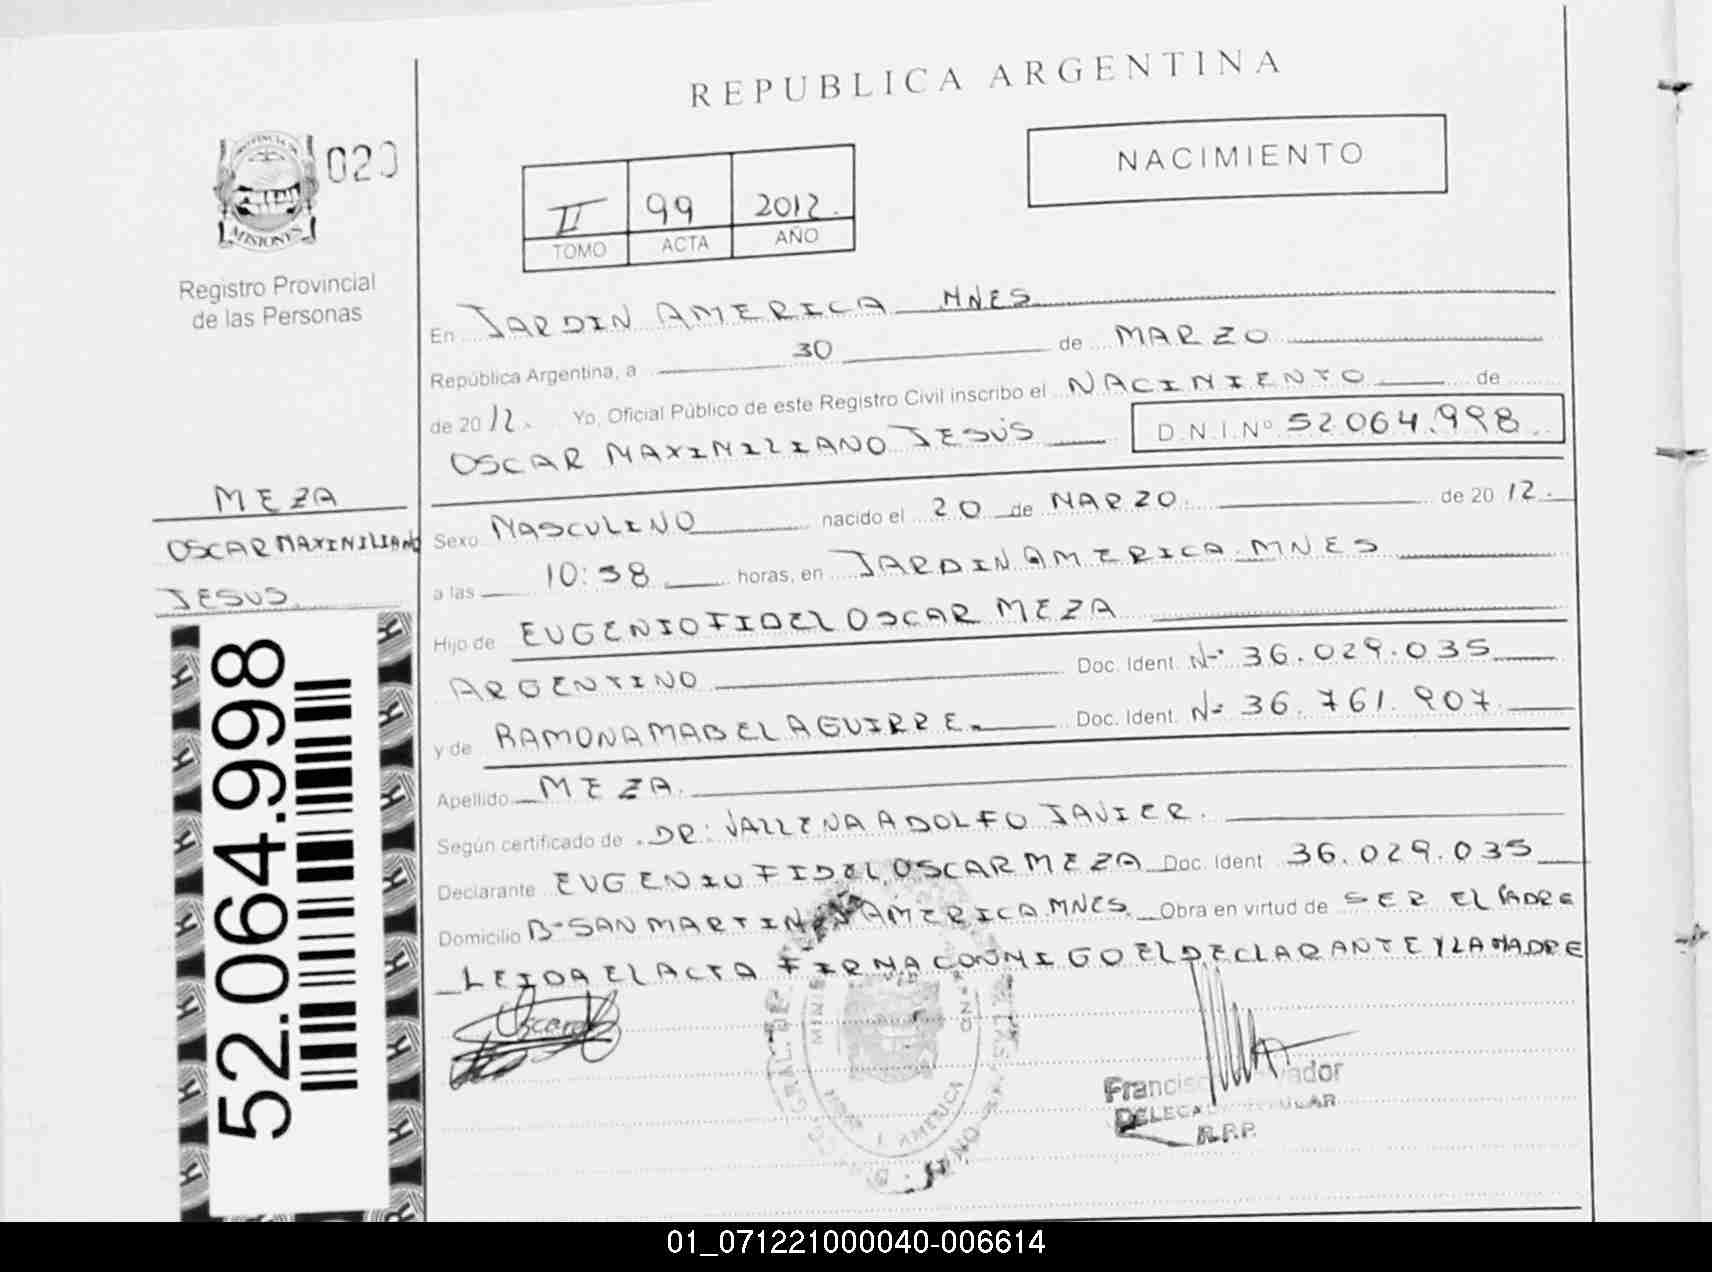 REPUBLICA ARGENTINA
NACIMIENTO
020
MISIONES
Registro Provincial
de las Personas
II 99 2012.
TOMO ACTA AÑO
En JARDIN AMERICA MNES
República Argentina, a 30 de MARZO
de 2012. Yo, Oficial Público de este Registro Civil inscribo el NACIMIENTO de
OSCAR MAXIMILIANO JESÚS D.N.I.Nº 52064.998
MEZA
OSCAR MAXIMILIANO
JESUS
Sexo MASCULINO nacido el 20 de MARZO de 2012.
a las 10:38 horas, en JARDIN AMERICA MNES
Hijo de EUGENIO FIDEL OSCAR MEZA
ARGENTINO Doc. Ident. Nº 36.029.035
y de RAMONA MABEL AGUIRRE. Doc. Ident. Nº 36.761.907
Apellido MEZA.
Según certificado de DR: VALLENA ADOLFO JAVIER.
Declarante EUGENIO FIDEL OSCAR MEZA Doc. Ident 36.029.035
Domicilio Bº SAN MARTIN J AMERICA MNES. Obra en virtud de SER EL PADRE
LEIDA EL ACTA FIRMA CONMIGO EL DECLARANTE Y LA MADRE
52.064.998
R.P.P.
01_071221000040-006614